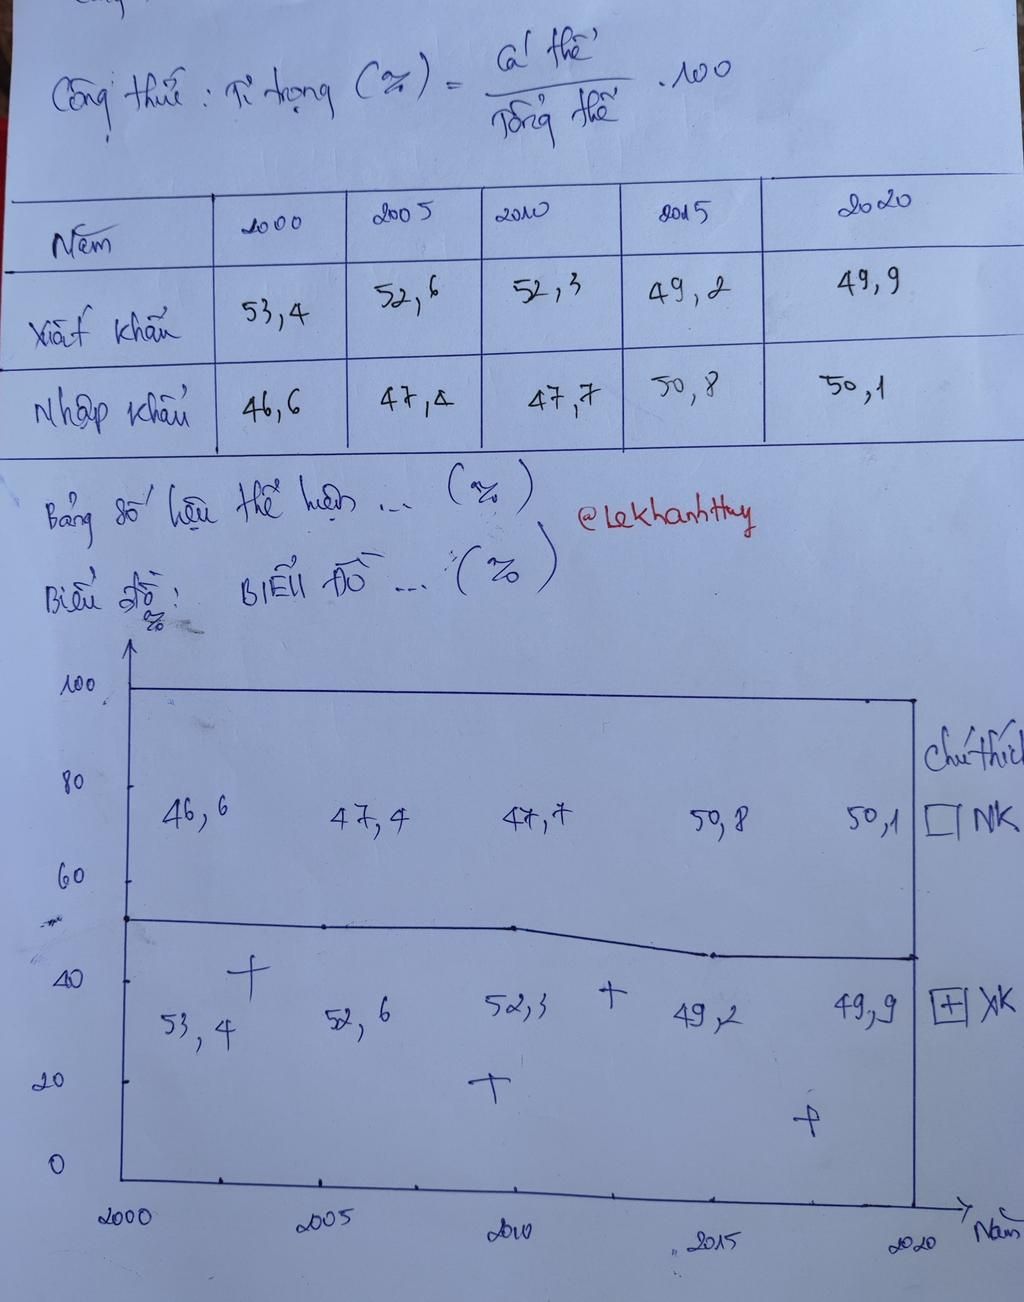 Công thức : Tỉ trọng (%) = Cá thể / Tổng thể . 100
Năm 2000 2005 2010 2015 2020
Xuất khẩu 53,4 52,6 52,3 49,2 49,9
Nhập khẩu 46,6 47,4 47,7 50,8 50,1
Bảng số liệu thể hiện ... (%)
@LeKhanhHuy
Biểu đồ: BIỂU ĐỒ ... (%)
%
100
Chú thích
80
46,6 47,4 47,7 50,8 50,1 NK
60
40
53,4 52,6 52,3 49,2 49,9 + XK
20
0
2000 2005 2010 2015 2020 Năm